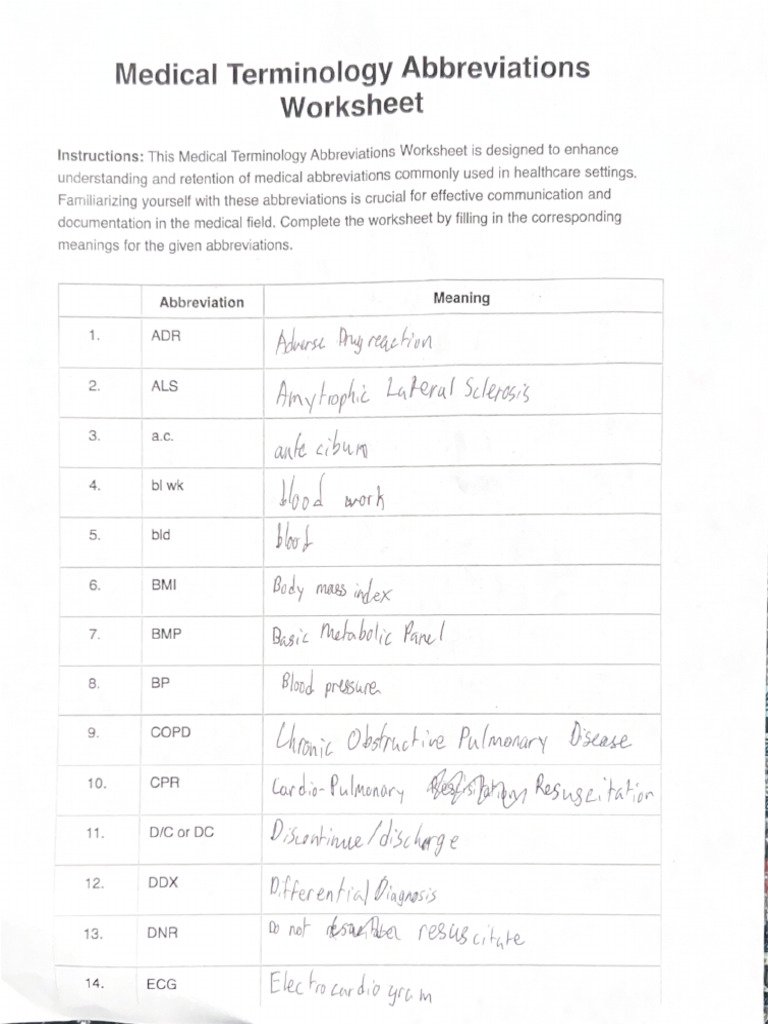 Medical Terminology Abbreviations
Worksheet
Instructions: This Medical Terminology Abbreviations Worksheet is designed to enhance
understanding and retention of medical abbreviations commonly used in healthcare settings.
Familiarizing yourself with these abbreviations is crucial for effective communication and
documentation in the medical field. Complete the worksheet by filling in the corresponding
meanings for the given abbreviations.
Abbreviation Meaning
1. ADR Adverse Drug reaction
2. ALS Amytrophic Lateral Sclerosis
3. a.c. ante cibum
4. bl wk blood work
5. bld blood
6. BMI Body mass index
7. BMP Basic Metabolic Panel
8. BP Blood pressure
9. COPD Chronic Obstructive Pulmonary Disease
10. CPR Cardio-Pulmonary Resuscitation
11. D/C or DC Discontinue/discharge
12. DDX Differential Diagnosis
13. DNR Do not resuscitate
14. ECG Electrocardiogram